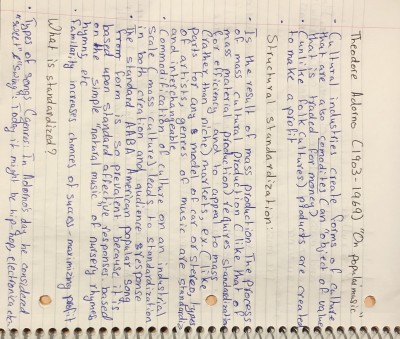 Theodore Adorno (1903-1969) "On popular music"
• Cultural industries create forms of culture
that are also commodities (an "object of value"
that is traded for money)
• (unlike folk cultures) products are created
to make a profit
Structural standardization:
• Is the result of mass production. The process
of mass cultural production (like that of
mass material production) requires standardization
for efficiency and to appeal to mass
(rather than niche) markets, ex. (like
parts to any model of car or stereo, types
of artists, genres of music are standardized
and interchangeable
• Commodification of culture on an industrial
scale (mass culture) leads to standardization
in both creation and audience response
• The standard AABA American popular song
form is so prevalent because it is
based upon standard affective responses based
on the simple natural music of nursery rhymes
hymns etc.
• familiarity increases chances of success, maximizing profit
What is standardized?
• Types of songs (genres: In Adorno's day he considered
"sweet" & "swing". Today it might be hip hop, electronica etc.